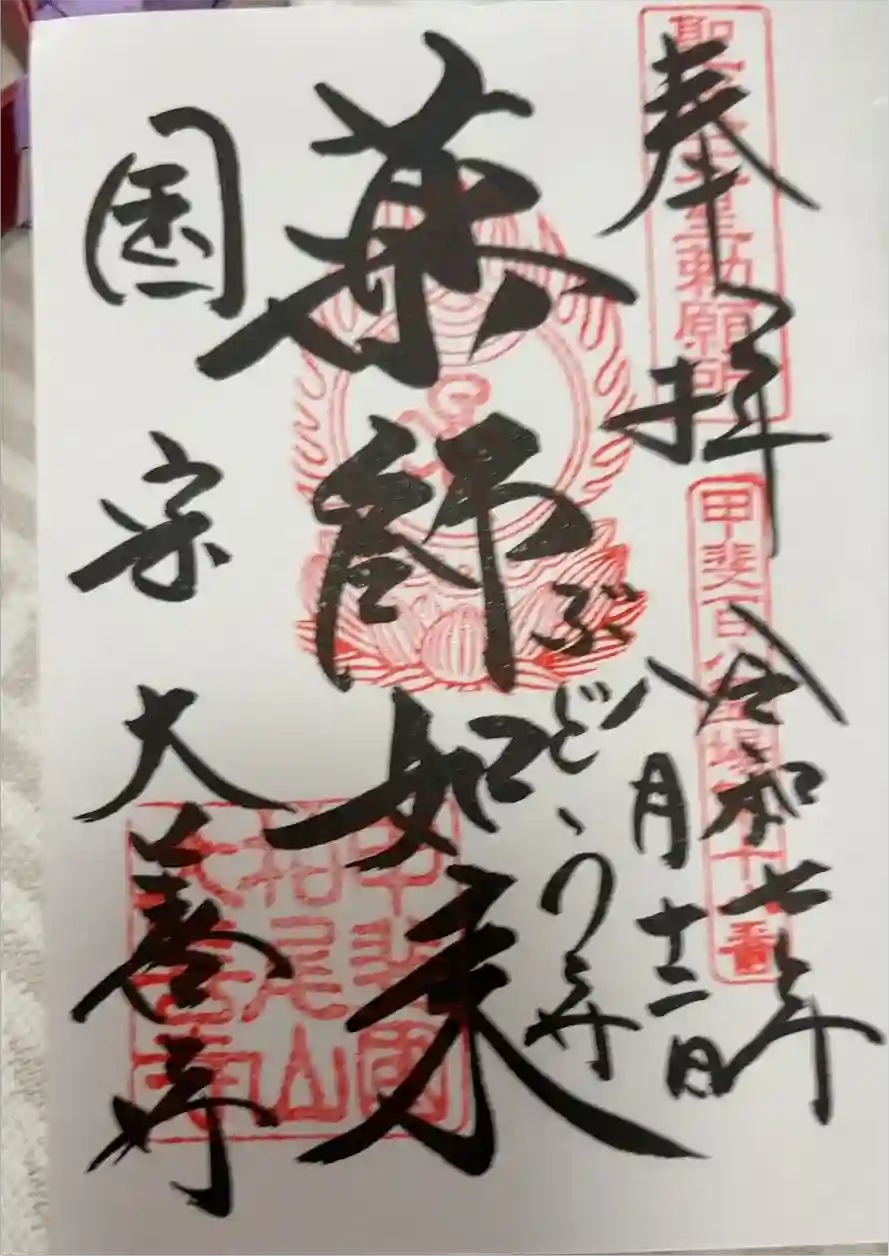 奉拝
令和七年
八月十二日
聖武天皇勅願所
甲斐百八霊場
番
薬師如来
ぶどう寺
国宝
大善寺
甲斐國
柏尾山
大善寺